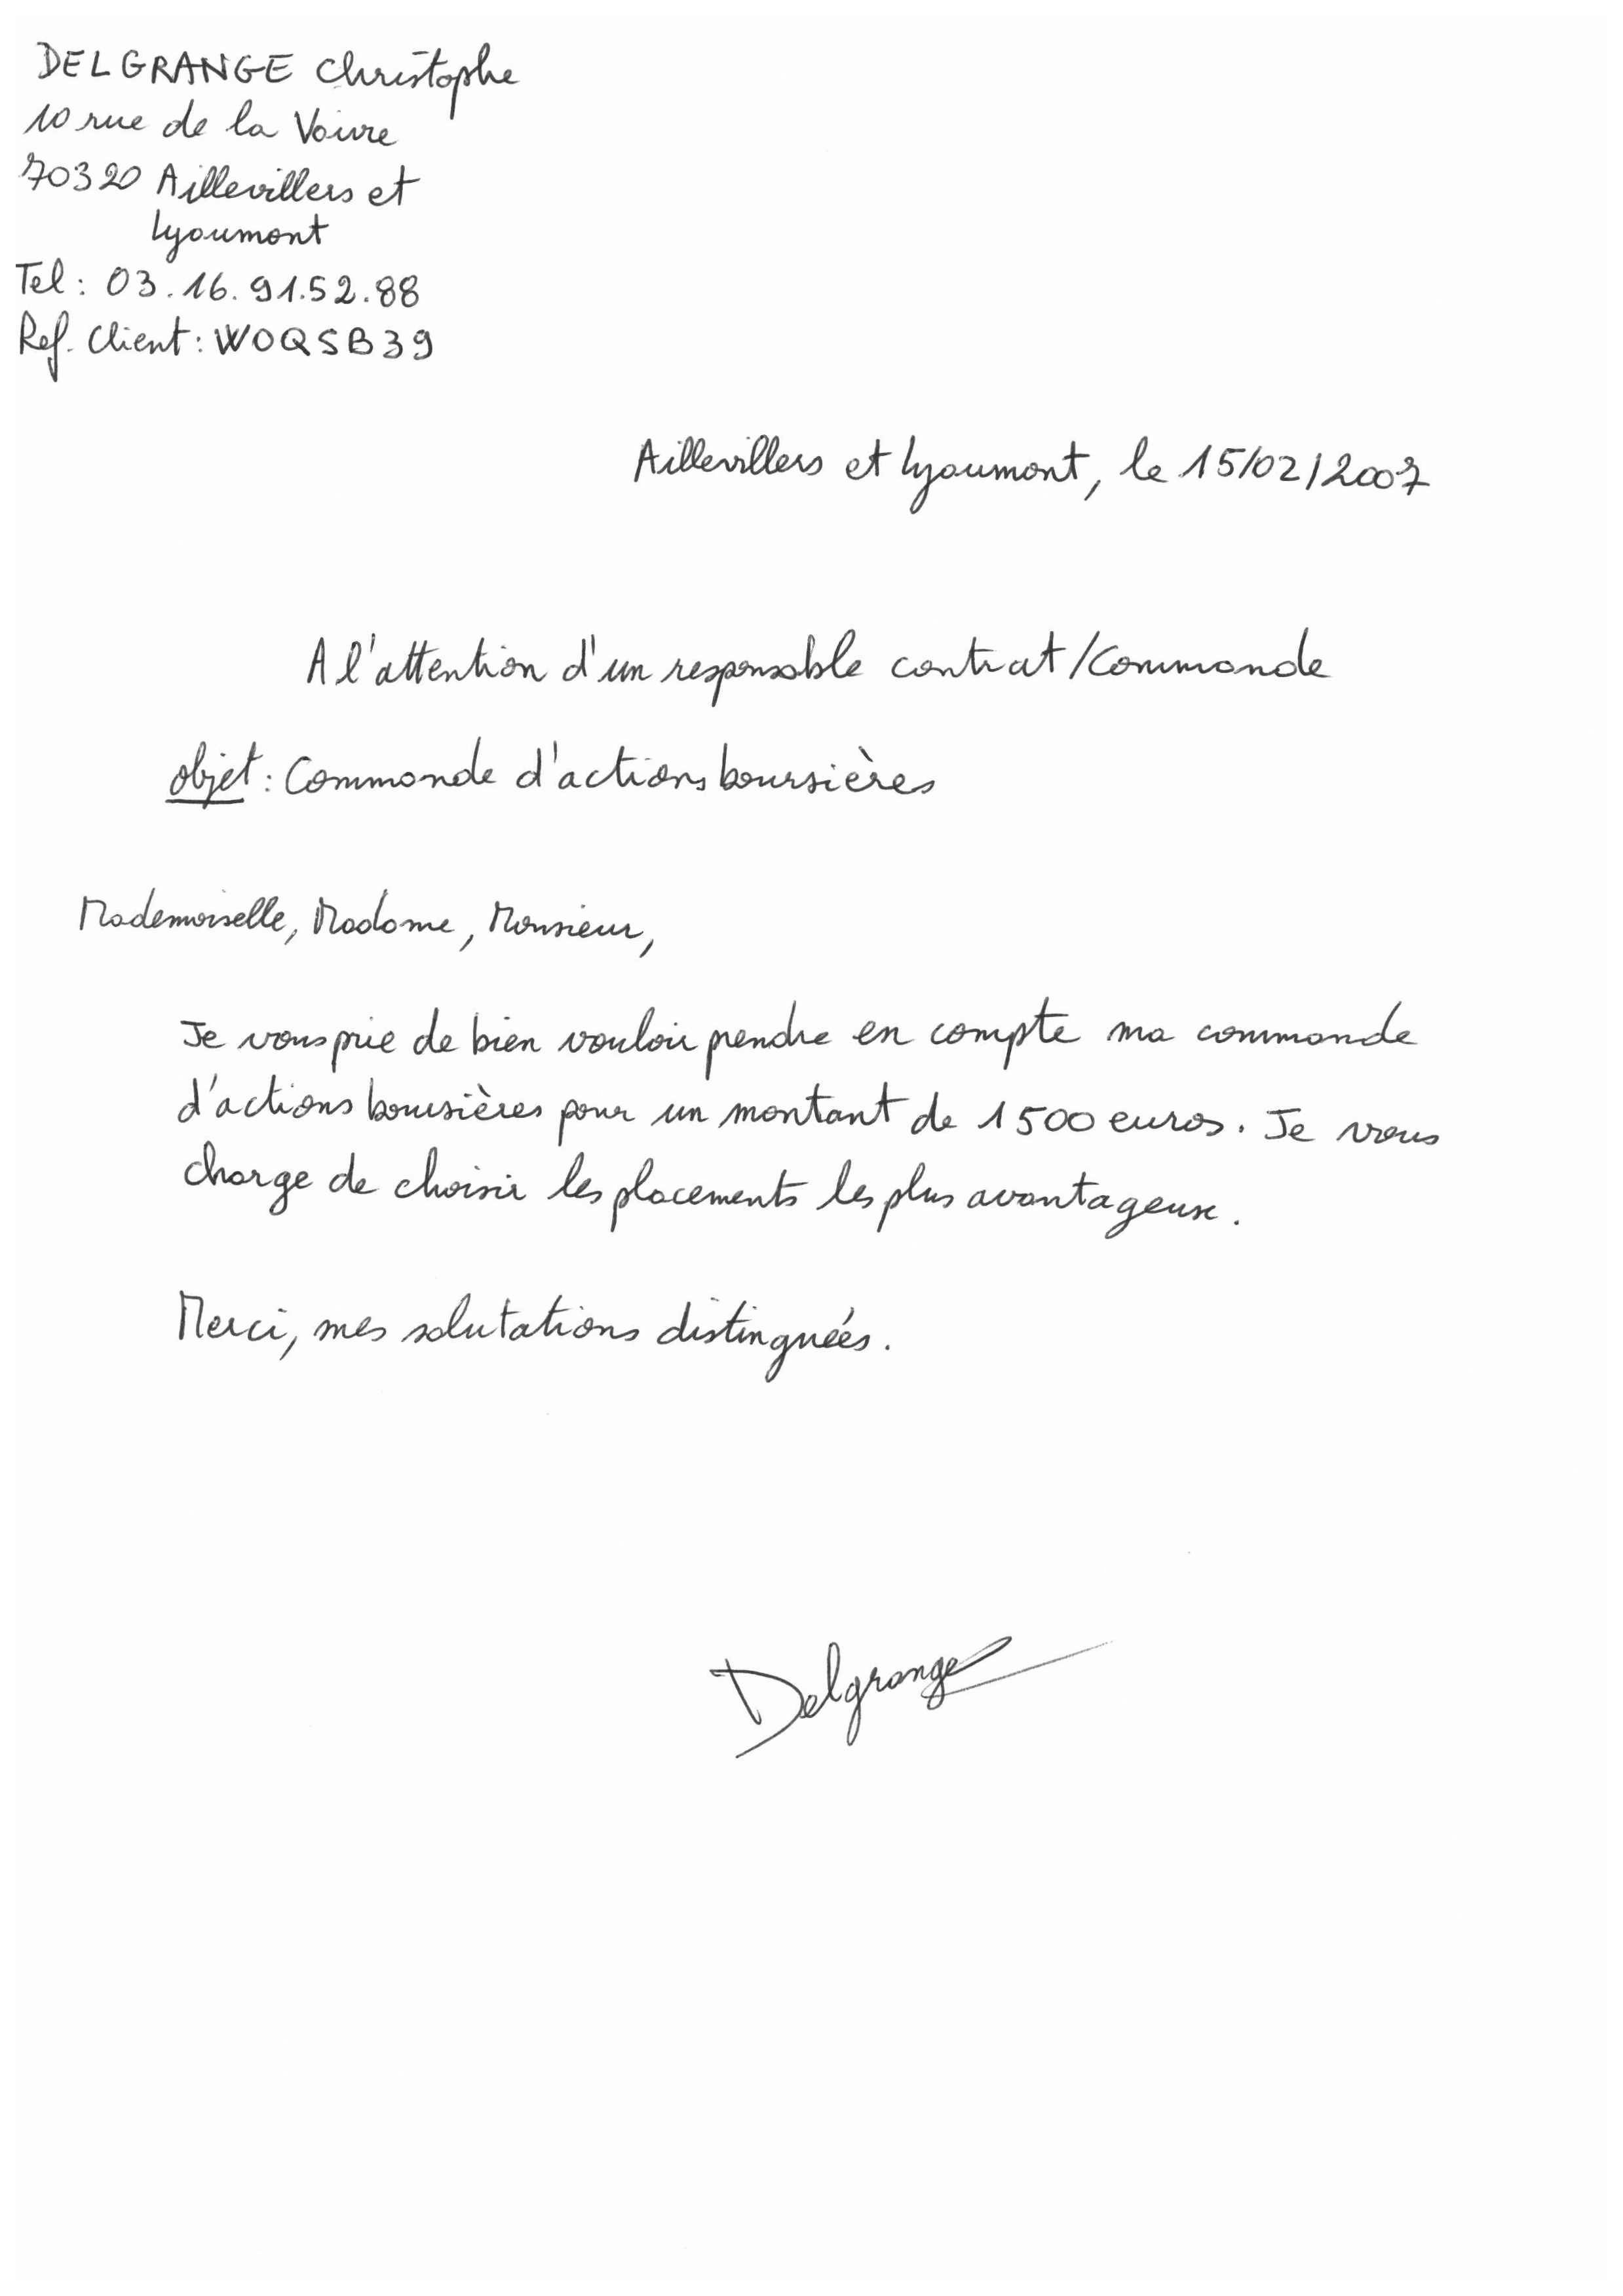 DELGRANGE Christophe
10 rue de la Voivre
70320 Aillevillers et
Lyaumont
Tel : 03.16.91.52.88
Ref. Client : WOQSB39
Aillevillers et Lyaumont, le 15/02/2007
A l'attention d'un responsable contrat/Commande
objet : Commande d'actions boursières
Mademoiselle, Madame, Monsieur,
Je vous prie de bien vouloir prendre en compte ma commande
d'actions boursières pour un montant de 1500 euros. Je vous
charge de choisir les placements les plus avantageux.
Merci, mes salutations distinguées.
Delgrange